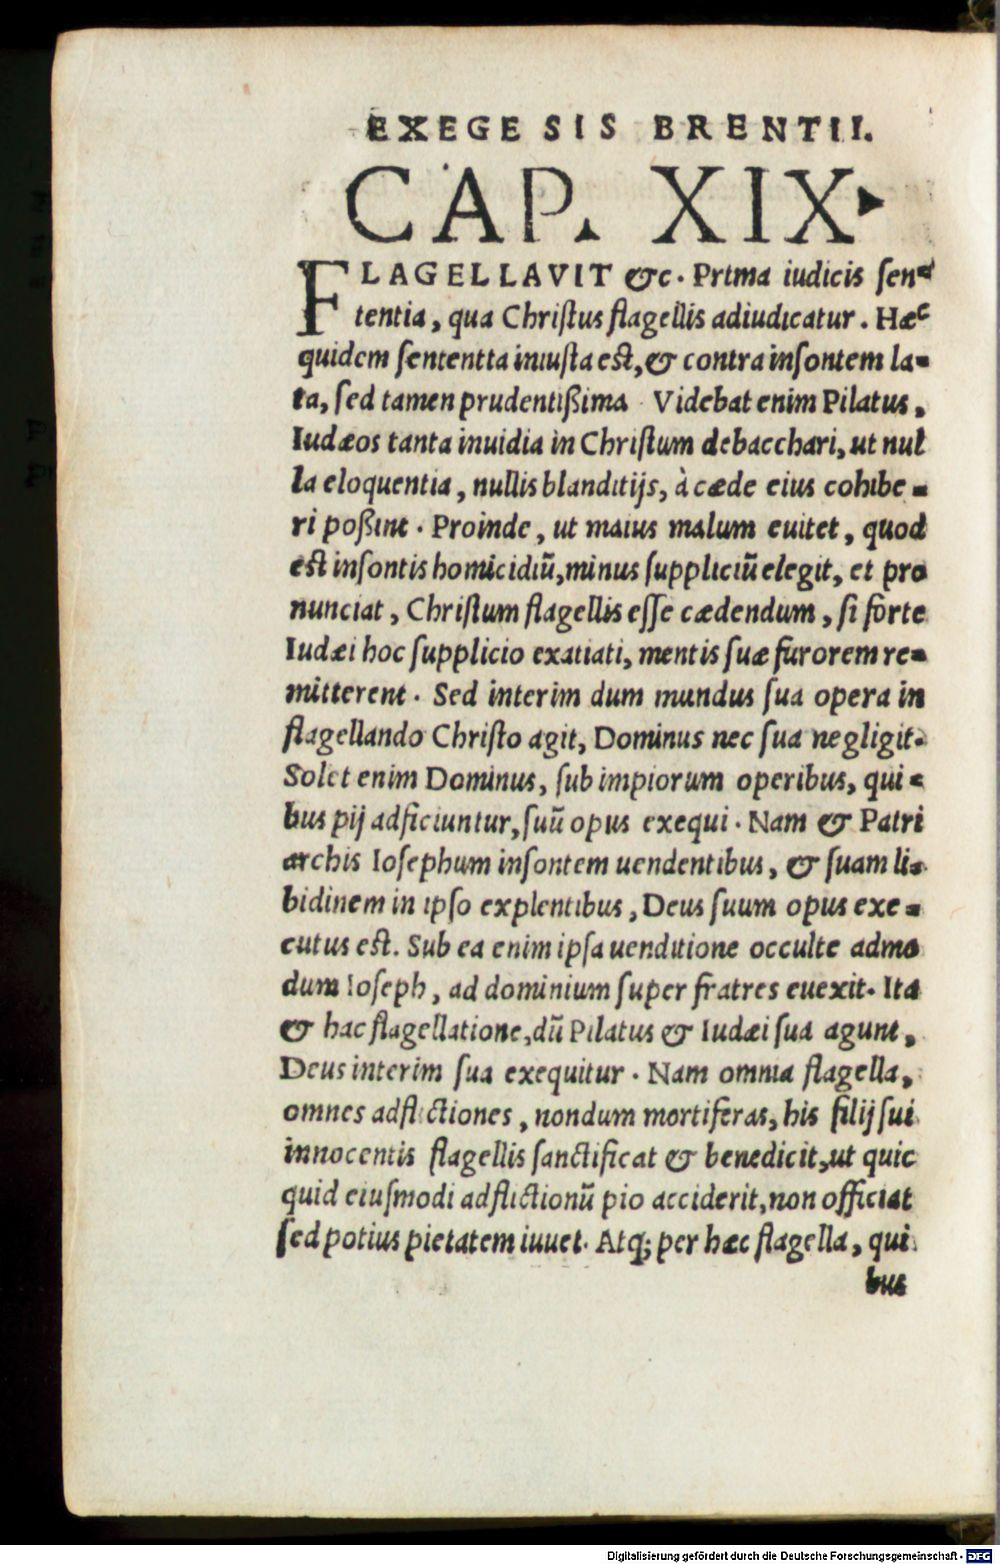 EXEGESIS BRENTII.
CAP. XIX.
FLAGELLAVIT &c. Prima iudicis sen-
tentia, qua Christus flagellis adiudicatur. Hæc
quidem sententia iniusta est, & contra insontem la-
ta, sed tamen prudentißima. Videbat enim Pilatus,
Iudæos tanta inuidia in Christum debacchari, ut nul
la eloquentia, nullis blanditijs, à cæde eius cohibe-
ri poßint. Proinde, ut maius malum euitet, quod
est insontis homicidiũ, minus suppliciũ elegit, et pro
nunciat, Christum flagellis esse cædendum, si forte
Iudæi hoc supplicio exatiati, mentis suæ furorem re-
mitterent. Sed interim dum mundus sua opera in
flagellando Christo agit, Dominus nec sua negligit.
Solet enim Dominus, sub impiorum operibus, qui-
bus pij adficiuntur, suũ opus exequi. Nam & Patri
archis Iosephum insontem uendentibus, & suam li-
bidinem in ipso explentibus, Deus suum opus exe-
cutus est. Sub ea enim ipsa uenditione occulte admo
dum Ioseph, ad dominium super fratres euexit. Ita
& hac flagellatione, dũ Pilatus & Iudæi sua agunt,
Deus interim sua exequitur. Nam omnia flagella,
omnes adflictiones, nondum mortiferas, his filij sui
innocentis flagellis sanctificat & benedicit, ut quic
quid eiusmodi adflictionũ pio acciderit, non officiat
sed potius pietatem iuuet. Atq; per hæc flagella, qui
bus
Digitalisierung gefördert durch die Deutsche Forschungsgemeinschaft - DFG